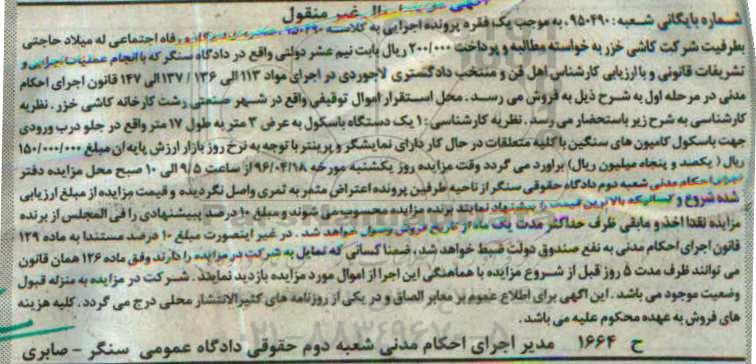 آگهی مزایده اموال غیر منقول
شماره بایگانی شعبه: ۹۵۰۴۹۰- به موجب یک فقره پرونده اجرایی به کلاسه ۹۵۰۴۹۰ رفاه اجتماعی له میلاد حاجتی
بطرفیت شرکت کاشی خزر به خواسته مطالبه و پرداخت ۲۰۰/۰۰۰ ریال بابت نیم عشر دولتی واقع در دادگاه سنگر که با انجام عملیات اجرایی و
تشریفات قانونی و با ارزیابی کارشناس اهل فن و منتخب دادگستری لاجوردی در اجرای مواد ۱۱۳ الی ۱۳۶ / ۱۳۷ الی ۱۴۷ قانون اجرای احکام
مدنی در مرحله اول به شرح ذیل به فروش می رسد. محل استقرار اموال توقیفی واقع در شهر صنعتی رشت کارخانه کاشی خزر. نظریه
کارشناسی به شرح زیر باستحضار می رسد. نظریه کارشناسی: ۱ یک دستگاه باسکول به عرض ۳ متر به طول ۱۷ متر واقع در جلو درب ورودی
جهت باسکول کامیون های سنگین با کلیه متعلقات در حال کار دارای نمایشگر و پرینتر با توجه به نرخ روز بازار ارزش پایه ان مبلغ ۱۵۰/۰۰۰/۰۰۰
ریال ( یکصد و پنجاه میلیون ریال) براورد می گردد وقت مزایده روز یکشنبه مورخه ۹۶/۰۴/۱۸ از ساعت ۹/۵ الی ۱۰ صبح محل مزایده دفتر
اجرای احکام مدنی شعبه دوم دادگاه حقوقی سنگر از ناحیه طرفین پرونده اعتراض مثمر به ثمری واصل نگردیده و قیمت مزایده از مبلغ ارزیابی
شده شروع و کسانیکه بالاترین قیمت را پیشنهاد نمایند برنده مزایده محسوب می شوند و مبلغ ۱۰ درصد پیشنهادی را فی المجلس از برنده
مزایده نقدا اخذ و مابقی ظرف حداکثر مدت یک ماه از تاریخ فروش وصول خواهد شد. در غیر اینصورت مبلغ ۱۰ درصد مستندا به ماده ۱۲۹
قانون اجرای احکام مدنی به نفع صندوق دولت ضبط خواهد شد، ضمنا کسانی که تمایل به شرکت در مزایده را دارند وفق ماده ۱۲۶ همان قانون
می توانند ظرف مدت ۵ روز قبل از شروع مزایده با هماهنگی این اجرا از اموال مورد مزایده بازدید نمایند. شرکت در مزایده به منزله قبول
وضعیت موجود می باشد. این اگهی برای اطلاع عموم بر معابر الصاق و در یکی از روزنامه های کثیرالانتشار محلی درج می گردد. کلیه هزینه
های فروش به عهده محکوم علیه می باشد.
ح ۱۶۶۴ مدیر اجرای احکام مدنی شعبه دوم حقوقی دادگاه عمومی سنگر - صابری